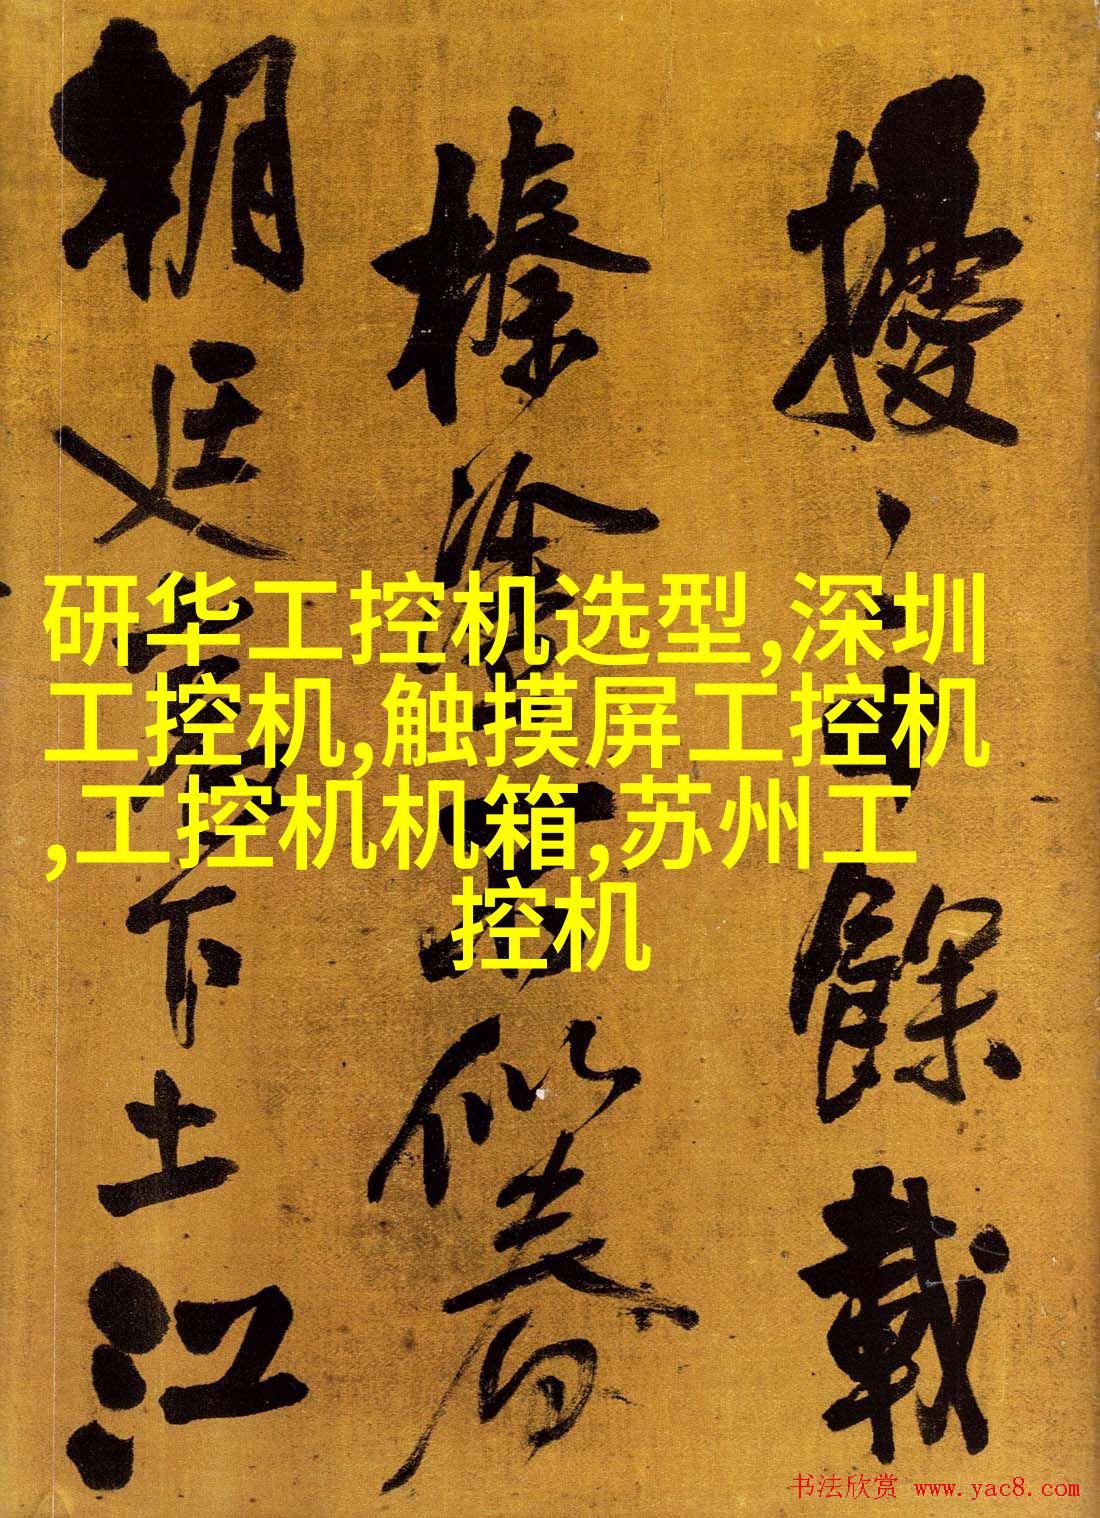 研华工控机选型,深圳
工控机,触摸屏工控机
,工控机机箱,苏州工
控机
擾餘載
榛
朝廷下土江
书法欣赏 www.yac8.com